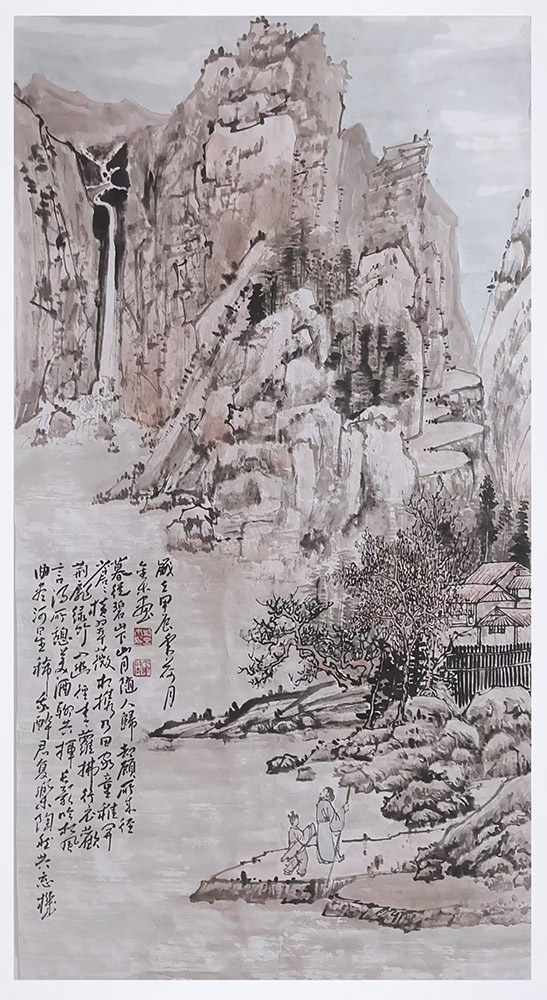 歲在甲辰年荷月
暮從碧山下山月随人歸却顧所來徑
蒼蒼横翠薇相携及田家童稚开
荊扉绿竹入幽徑青蘿拂行衣歡
言得所憩美酒聊共揮長歌吟松風
曲尽河星稀我醉君复樂陶然共忘機